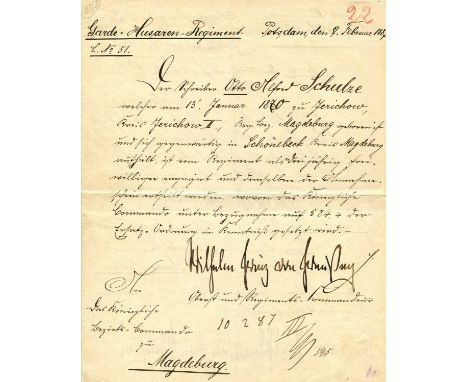 22
Garde-Husaren-Regiment. Potsdam, den 7. Februar 1887
L. No 51.
Der Schreiber Otto Alfred Schulze
welcher am 13. Januar 1870 zu Jerichow
Kreis Jerichow II, Reg. Bez. Magdeburg geboren ist
und sich gegenwärtig in Schönebeck Kreis Magdeburg
aufhält, ist vom Regiment als Dreijährig Frei-
williger engagirt und demselben der Annahme-
schein ertheilt worden, wovon das Königliche
Commando unter Bezugnahme auf § 84,4 der
Ersatz-Ordnung in Kenntniß gesetzt wird.-
Wilhelm Prinz von Preußen
Oberst und Regiments-Kommandeur
An
Das Königliche
Bezirks-Commando
zu
Magdeburg.
10 2 87